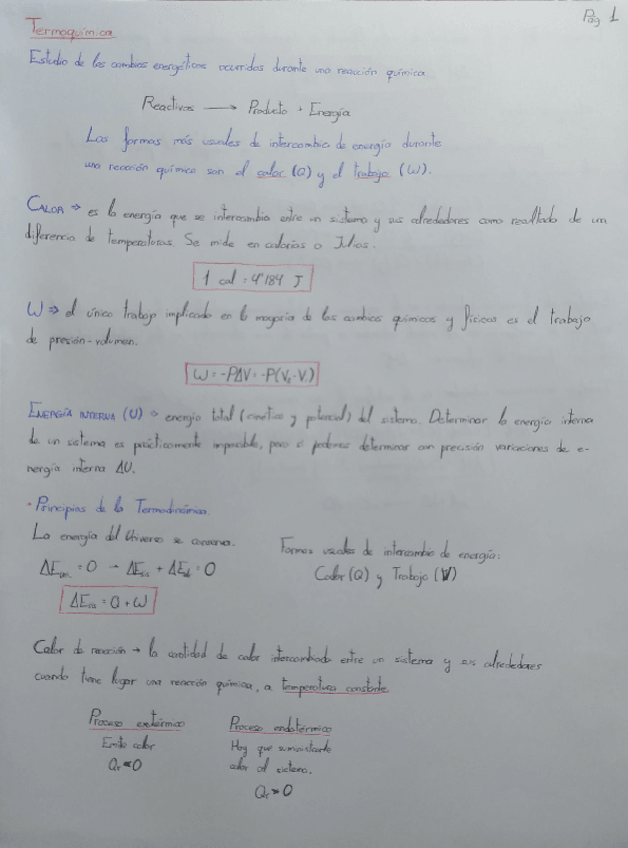 Pág 1
Termoquímica
Estudio de los cambios energéticos ocurridos durante una reacción química
Reactivos → Producto + Energía
Las formas más usuales de intercambio de energía durante
una reacción química son el calor (Q) y el trabajo (W).
CALOR → es la energía que se intercambia entre un sistema y sus alrededores como resultado de un
diferencia de temperaturas. Se mide en calorías o Julios.
1 cal = 4'184 J
W ⇒ el único trabajo implicado en la mayoría de los cambios químicos y físicos es el trabajo
de presión-volumen.
W = -PΔV = -P(V₂-V₁)
ENERGÍA INTERNA (U) → energía total (cinética y potencial) del sistema. Determinar la energía interna
de un sistema es prácticamente imposible, pero sí podemos determinar con precisión variaciones de e-
nergía interna ΔU.
· Principios de la Termodinámica.
La energía del Universo se conserva.
ΔE = 0 → ΔEsis + ΔE = 0
ΔEsis = Q + W
Formas usuales de intercambio de energía:
Calor (Q) y Trabajo (W)
Calor de reacción → la cantidad de calor intercambiado entre un sistema y sus alrededores
cuando tiene lugar una reacción química, a temperatura constante.
Proceso exotérmico
Emite calor
Qr < 0
Proceso endotérmico
Hay que suministrarle
calor al sistema.
Qr > 0